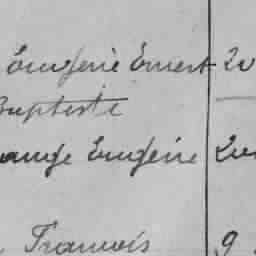 Eugène Ernest
Baptiste
ange Eugène
François 9